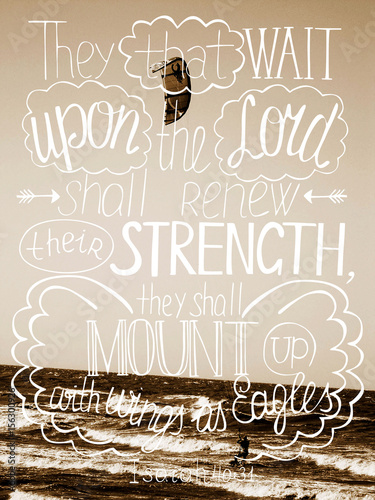 They that WAIT
upon the Lord
shall RENEW
their STRENGTH,
they shall
MOUNT up
with wings as Eagles
Isaiah 40:31